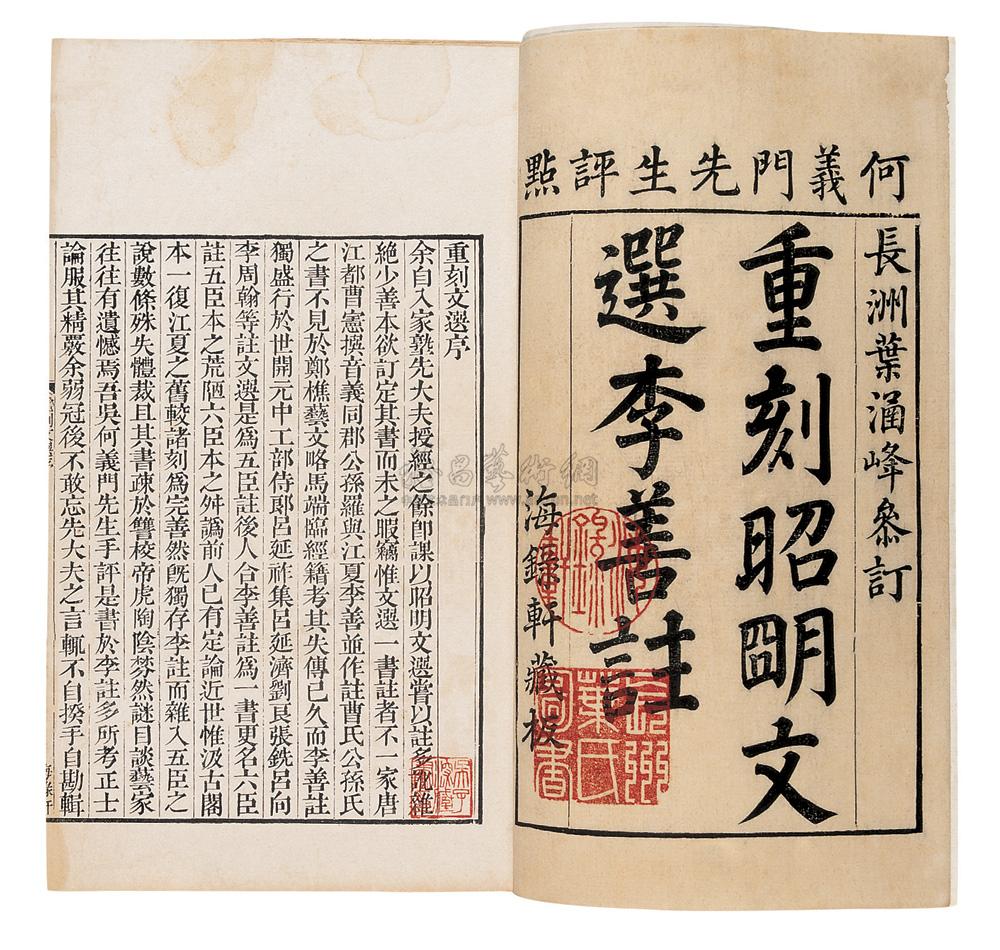 何義門先生評點
長洲葉涵峰參訂
重刻昭明文
選李善註
海錄軒藏板
重刻文選序
余自入家塾先大夫授經之餘卽課以昭明文選嘗以註多訛雜
絶少善本欲訂定其書而未之暇竊惟文選一書註者不一家唐
江都曹憲撰音義同郡公孫羅與江夏李善並作註曹氏公孫氏
之書不見於鄭樵藝文略馬端臨經籍考其失傳已久而李善註
獨盛行於世開元中工部侍郞呂延祚集呂延濟劉良張銑呂向
李周翰等註文選是爲五臣註後人合李善註爲一書更名六臣
註五臣本之荒陋六臣本之舛譌前人已有定論近世惟汲古閣
本一復江夏之舊較諸刻爲完善然旣獨存李註而雜入五臣之
說數條殊失體裁且其書疎於讐校帝虎陶陰棼然謎目談藝家
往往有遺憾焉吾吳何義門先生手評是書於李註多所考正士
論服其精覈余弱冠後不敢忘先大夫之言輒不自揆手自勘輯
葉氏
圖書
藝術網